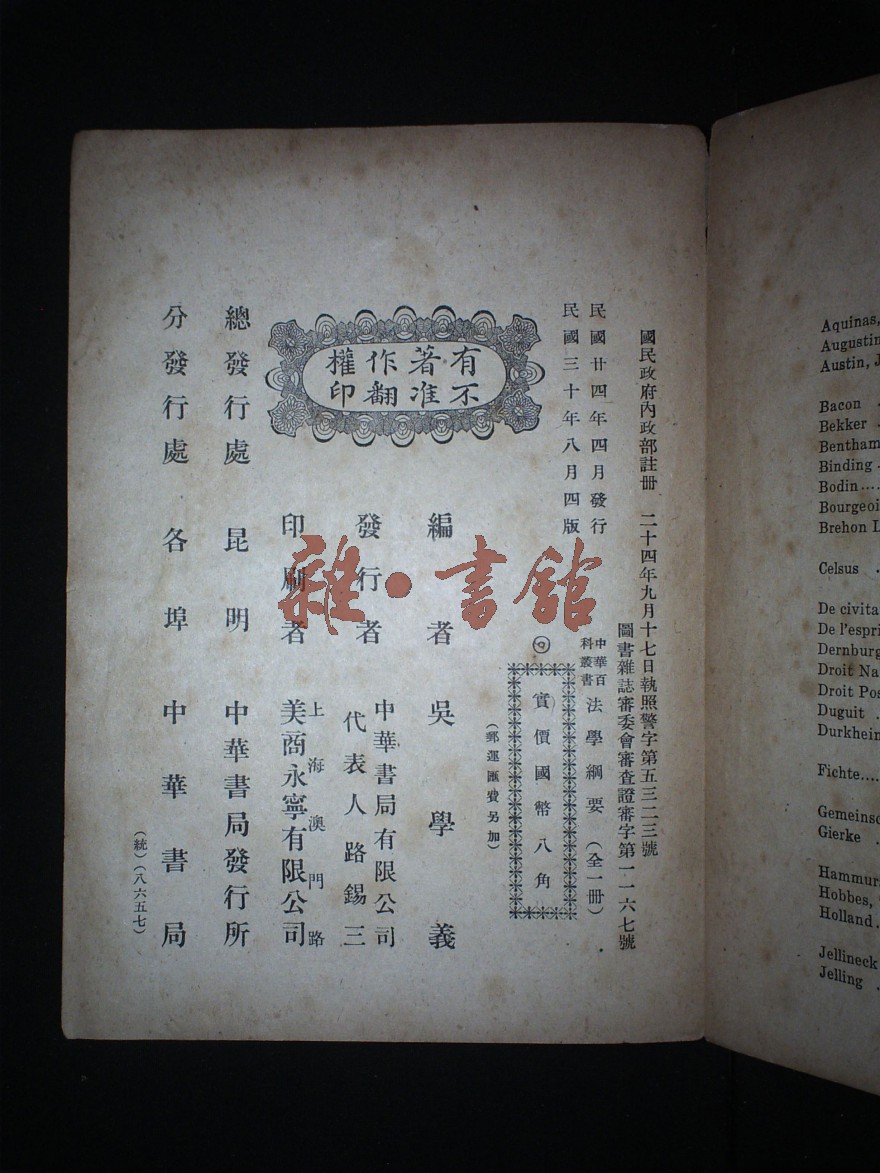 國民政府內政部註冊 二十四年九月十七日執照警字第五三二三號
圖書雜誌審委會審查證審字第一一六七號
民國廿四年四月發行
民國三十年八月四版
中華百科叢書 法學綱要(全一冊)
實價國幣八角
(郵運匯費另加)
有著作權
不准翻印
編者 吳學義
發行者 中華書局有限公司
代表人路錫三
印刷者 上海澳門路
美商永寧有限公司
總發行處 昆明 中華書局發行所
分發行處 各埠 中華書局
(統)(八六五七)
雜·書館
Aquinas,
Augustin
Austin, J
Bacon
Bekker
Bentham
Binding
Bodin....
Bourgeoi
Brehon L
Celsus
De civita
De l'espri
Dernburg
Droit Na
Droit Pos
Duguit
Durkhein
Fichte....
Gemeinsc
Gierke
Hammur
Hobbes,
Holland
Jellineck
Jelling